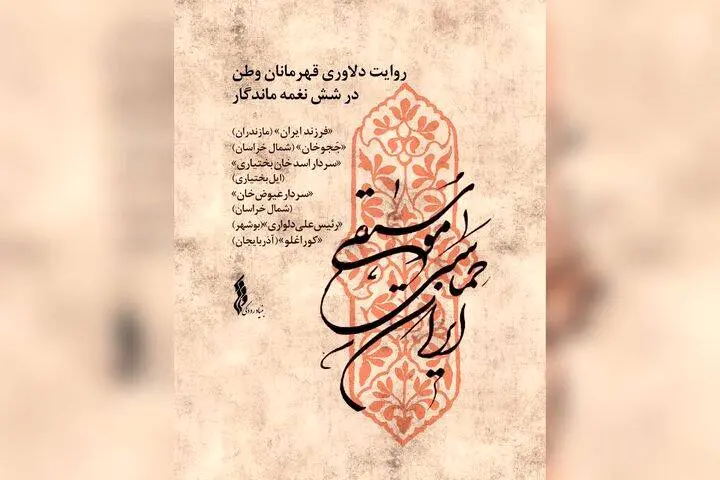 روایت دلاوری قهرمانان وطن
در شش نغمه ماندگار
«فرزند ایران» (مازندران)
«ججوخان» (شمال خراسان)
«سردار اسدخان بختیاری»
(ایل بختیاری)
«سردار عیوض‌خان»
(شمال خراسان)
«رئیس‌علی دلواری» (بوشهر)
«کوراغلو» (آذربایجان)
موسیقی
حماسی
ایران
بنیاد رودکی